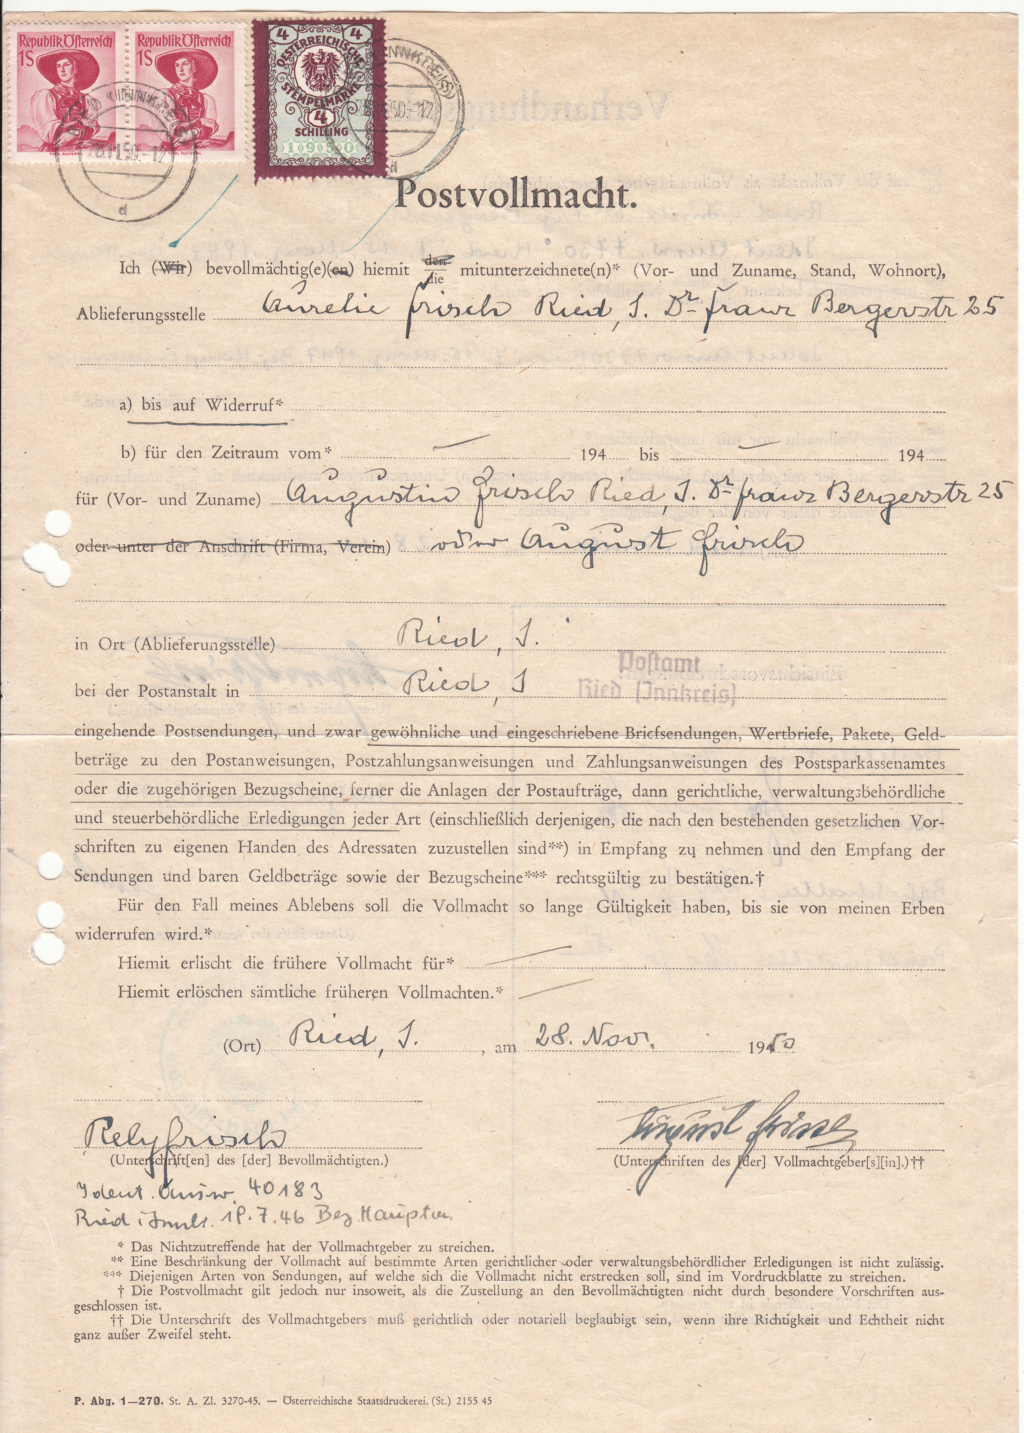 Republik Österreich
1S
Republik Österreich
1S
4 4
OESTERREICHISCHE
STEMPELMARKE
4
SCHILLING
1950
28.11.50.-17
d
Postvollmacht.
Ich (Wir) bevollmächtig(e)(en) hiemit den/die mitunterzeichnete(n)* (Vor- und Zuname, Stand, Wohnort),
Ablieferungsstelle Aurelie Frisch Ried, I. Dr. Franz Bergerstr 25
a) bis auf Widerruf*
b) für den Zeitraum vom* — 194 bis — 194
für (Vor- und Zuname) Augustin Frisch Ried, I. Dr. Franz Bergerstr 25
oder unter der Anschrift (Firma, Verein) oder August Frisch
in Ort (Ablieferungsstelle) Ried, I.
Postamt
Ried (Innkreis)
bei der Postanstalt in Ried, I
eingehende Postsendungen, und zwar gewöhnliche und eingeschriebene Briefsendungen, Wertbriefe, Pakete, Geld-
beträge zu den Postanweisungen, Postzahlungsanweisungen und Zahlungsanweisungen des Postsparkassenamtes
oder die zugehörigen Bezugscheine, ferner die Anlagen der Postaufträge, dann gerichtliche, verwaltungsbehördliche
und steuerbehördliche Erledigungen jeder Art (einschließlich derjenigen, die nach den bestehenden gesetzlichen Vor-
schriften zu eigenen Handen des Adressaten zuzustellen sind**) in Empfang zu nehmen und den Empfang der
Sendungen und baren Geldbeträge sowie der Bezugscheine*** rechtsgültig zu bestätigen.†
Für den Fall meines Ablebens soll die Vollmacht so lange Gültigkeit haben, bis sie von meinen Erben
widerrufen wird.*
Hiemit erlischt die frühere Vollmacht für* —
Hiemit erlöschen sämtliche früheren Vollmachten.* —
(Ort) Ried, I. , am 28. Nov. 1950
Rely Frisch
August Frisch
(Unterschrift[en] des [der] Bevollmächtigten.)
(Unterschriften des [der] Vollmachtgeber[s][in].)††
Ident. Ausw. 40183
Ried i. Innkr. 19.7.46 Bez. Hauptm.
* Das Nichtzutreffende hat der Vollmachtgeber zu streichen.
** Eine Beschränkung der Vollmacht auf bestimmte Arten gerichtlicher oder verwaltungsbehördlicher Erledigungen ist nicht zulässig.
*** Diejenigen Arten von Sendungen, auf welche sich die Vollmacht nicht erstrecken soll, sind im Vordruckblatte zu streichen.
† Die Postvollmacht gilt jedoch nur insoweit, als die Zustellung an den Bevollmächtigten nicht durch besondere Vorschriften aus-
geschlossen ist.
†† Die Unterschrift des Vollmachtgebers muß gerichtlich oder notariell beglaubigt sein, wenn ihre Richtigkeit und Echtheit nicht
ganz außer Zweifel steht.
P. Abg. 1—270. St. A. Zl. 3270-45. — Österreichische Staatsdruckerei. (St.) 2155 45